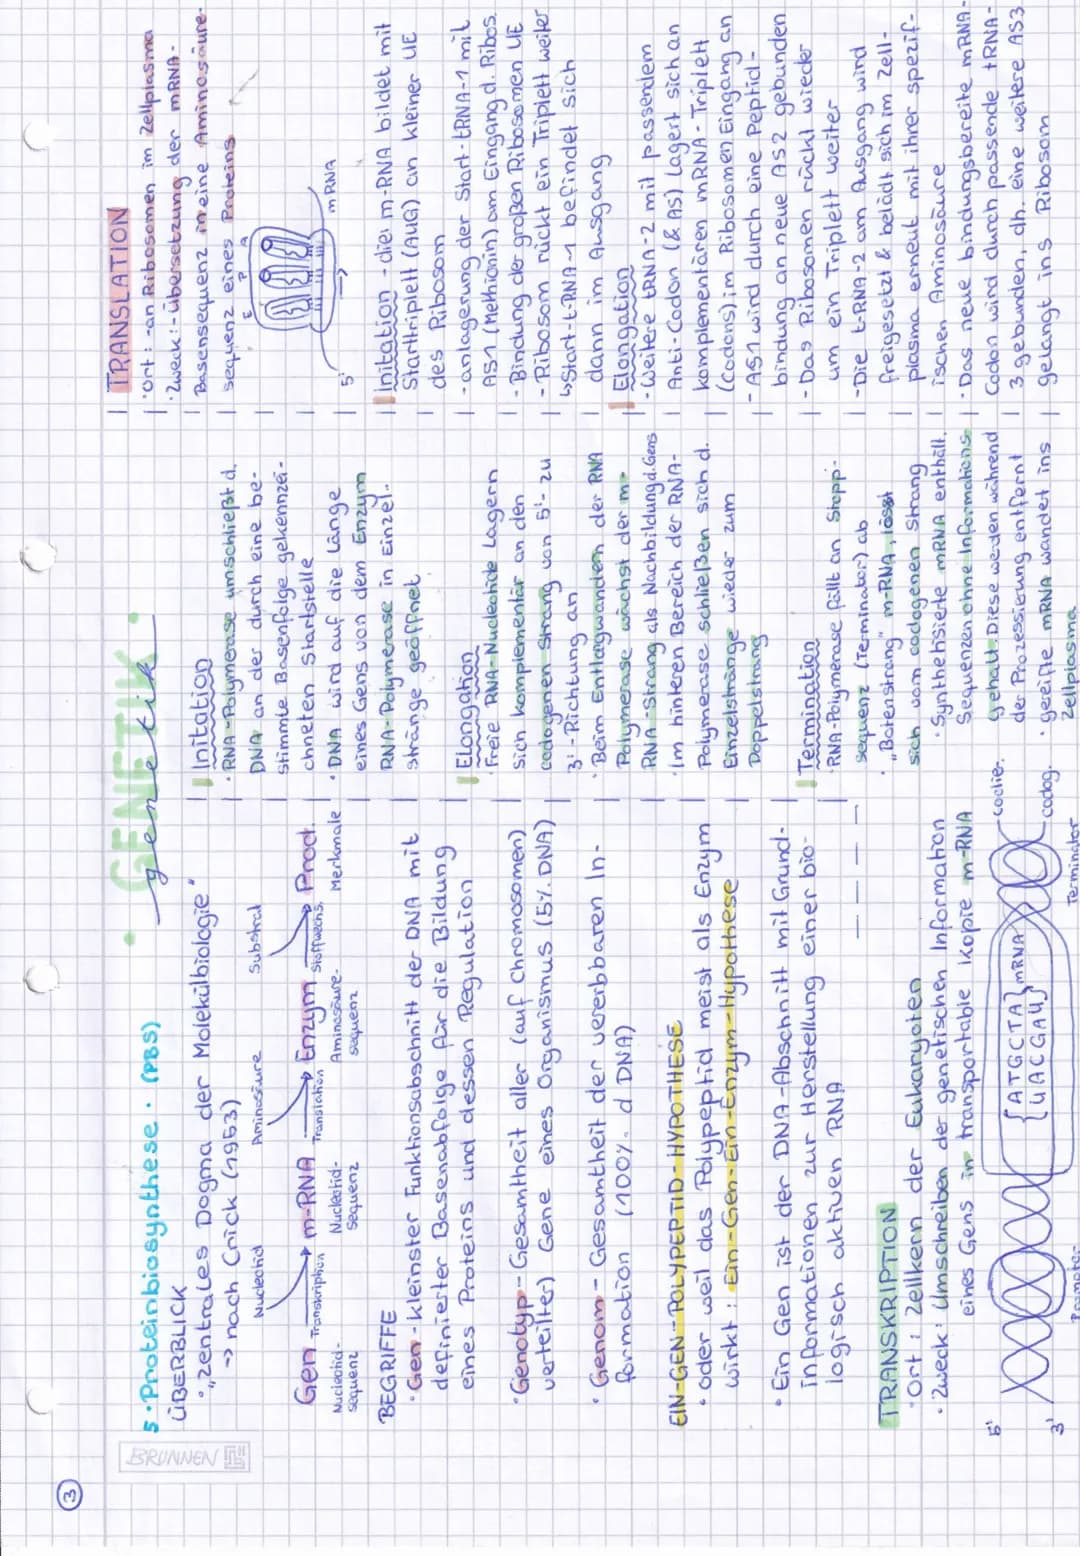 3
BRUNNEN
• GENETIK •
genetik
5. Proteinbiosynthese. (PBS)
ÜBERBLICK
• „Zentrales Dogma der Molekülbiologie"
→ nach Crick (1953)
Nucleotid Aminosäure Substrat
Gen → m-RNA → Enzym → Prod.
Transkription Translation Stoffwechs.
Nucleotid-sequenz Nucleotid-sequenz Aminosäure-sequenz Merkmale
BEGRIFFE
• Gen - kleinster Funktionsabschnitt der DNA mit
definierter Basenabfolge für die Bildung
eines Proteins und dessen Regulation
• Genotyp - Gesamtheit aller (auf Chromosomen
verteilter) Gene eines Organismus (5% DNA)
• Genom - Gesamtheit der vererbbaren In-
formation (100% d DNA)
EIN-GEN-POLYPEPTID-HYPOTHESE
• oder weil das Polypeptid meist als Enzym
wirkt: Ein-Gen-Ein-Enzym-Hypothese
• Ein Gen ist der DNA-Abschnitt mit Grund-
informationen zur Herstellung einer bio-
logisch aktiven RNA
TRANSKRIPTION
• Ort: Zellkern der Eukaryoten
• Zweck: Umschreiben der genetischen Information
eines Gens in transportable Kopie m-RNA
5'
3'
ATGCTA
UACGAU
mRNA
codier.
codog.
Promoter
Terminator
Initation
• RNA-Polymerase umschließt d.
DNA an der durch eine be-
stimmte Basenfolge gekennzei-
chneten Startstelle
• DNA wird auf die Länge
eines Gens von dem Enzym
RNA-Polymerase in Einzel-
stränge geöffnet
Elongation
• Freie RNA-Nucleotide lagern
sich komplementär an den
codogenen Strang von 5'- zu
3'-Richtung an
• Beim Entlagwandern der RNA
Polymerase wächst der m-
RNA-Strang als Nachbildung d. Gens
• Im hinteren Bereich der RNA-
Polymerase schließen sich d.
Einzelstränge wieder zum
Doppelstrang
Termination
• RNA-Polymerase fällt an Stopp-
sequenz (Terminator) ab
• „Botenstrang" m-RNA, lässt
sich vom codogenen Strang
• Synthetisierte mRNA enthält
Sequenzen ohne Informations-
gehalt. Diese werden während
der Prozessierung entfernt
• gereifte mRNA wandet ins
Zellplasma
TRANSLATION
• Ort: - an Ribosomen im Zellplasma
• Zweck: - Übersetzung der mRNA-
Basensequenz in eine Aminosäure-
sequenz eines Proteins
E P A
5'
mRNA
Initation - die m-RNA bildet mit
Starttriplett (AUG) an kleiner UE
des Ribosom
- anlagerung der Start-tRNA-1 mit
AS1 (Methionin) am Eingang d. Ribos.
- Bindung der großen Ribosomen UE
- Ribosom rückt ein Triplett weiter
↳ Start-t-RNA-1 befindet sich
dann im Ausgang
Elongation
- Weitere tRNA-2 mit passendem
Anti-Codon (& AS) lagert sich an
komplementären mRNA-Triplett
(Codons) im Ribosomen Eingang an
- AS1 wird durch eine Peptid-
bindung an neue AS2 gebunden
- Das Ribosomen rückt wieder
um ein Triplett weiter
- Die t-RNA-2 am Ausgang wird
freigesetzt & belädt sich im Zell-
plasma erneut mit ihrer spezif-
ischen Aminosäure
• Das neue bindungsbereite mRNA-
Codon wird durch passende tRNA-
3 gebunden, dh. eine weitere AS3
gelangt ins Ribosom